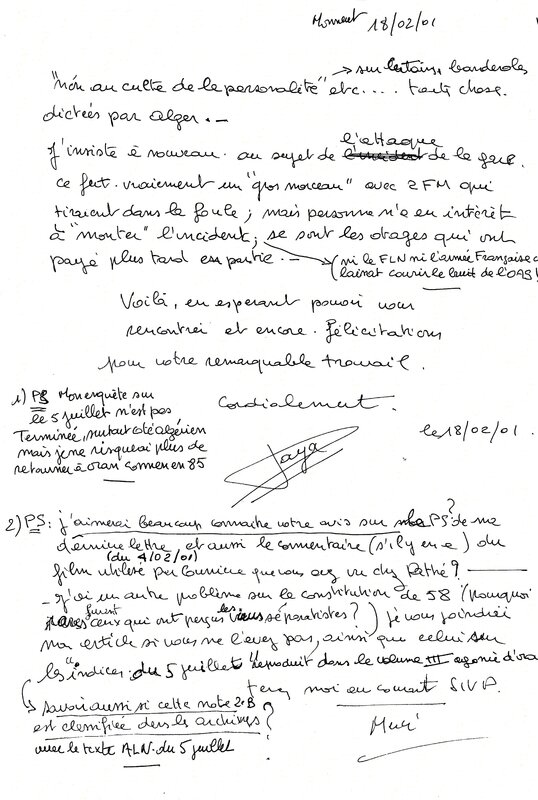 18/02/01
→ sur certains banderoles
"non au culte de la personalité" etc.... toute chose
dictées par alger. -
J'insiste à nouveau. au sujet de l'incident l'attaque de la gare.
ce fut vraiment un "gros morceau" avec 2 FM qui
tiraient dans la foule ; mais personne n'a eu intérêt
à "monter" l'incident ; se sont les otages qui ont
payé plus tard en partie. -
(ni le FLN ni l'armée Française
courir le bruit de l'OAS !
Voilà, en esperant pouvoir vous
rencontrer et encore. Félicitations
pour votre remarquable travail.
Cordialement.
1) PS Mon enquête sur
le 5 juillet n'est pas
Terminée, surtout coté algérien
mais je ne risquerai plus de
retourner à oran comme en 85
le 18/02/01.
2) PS : j'aimerai beaucoup connaitre votre avis sur PS de ma
dernière lettre (du 4/02/01) et aussi le comentaire (s'il y en a) du
film utilisé par que vous avez vu chez Pathé ?
- J'ai un autre problème sur la constitution de 58 (Pourquoi
furent ceux qui ont perçus les séparatistes ?) je vous joindrai
mon article si vous ne l'avez pas, ainsi que celui sur
les "indices du 5 juillet" reproduit dans le volume III agonie d'
tenez moi au courant SIVP.
Savoir aussi si cette note 2B
est classifiée dans les archives ?
avec le texte ALN du 5 juillet
Merci